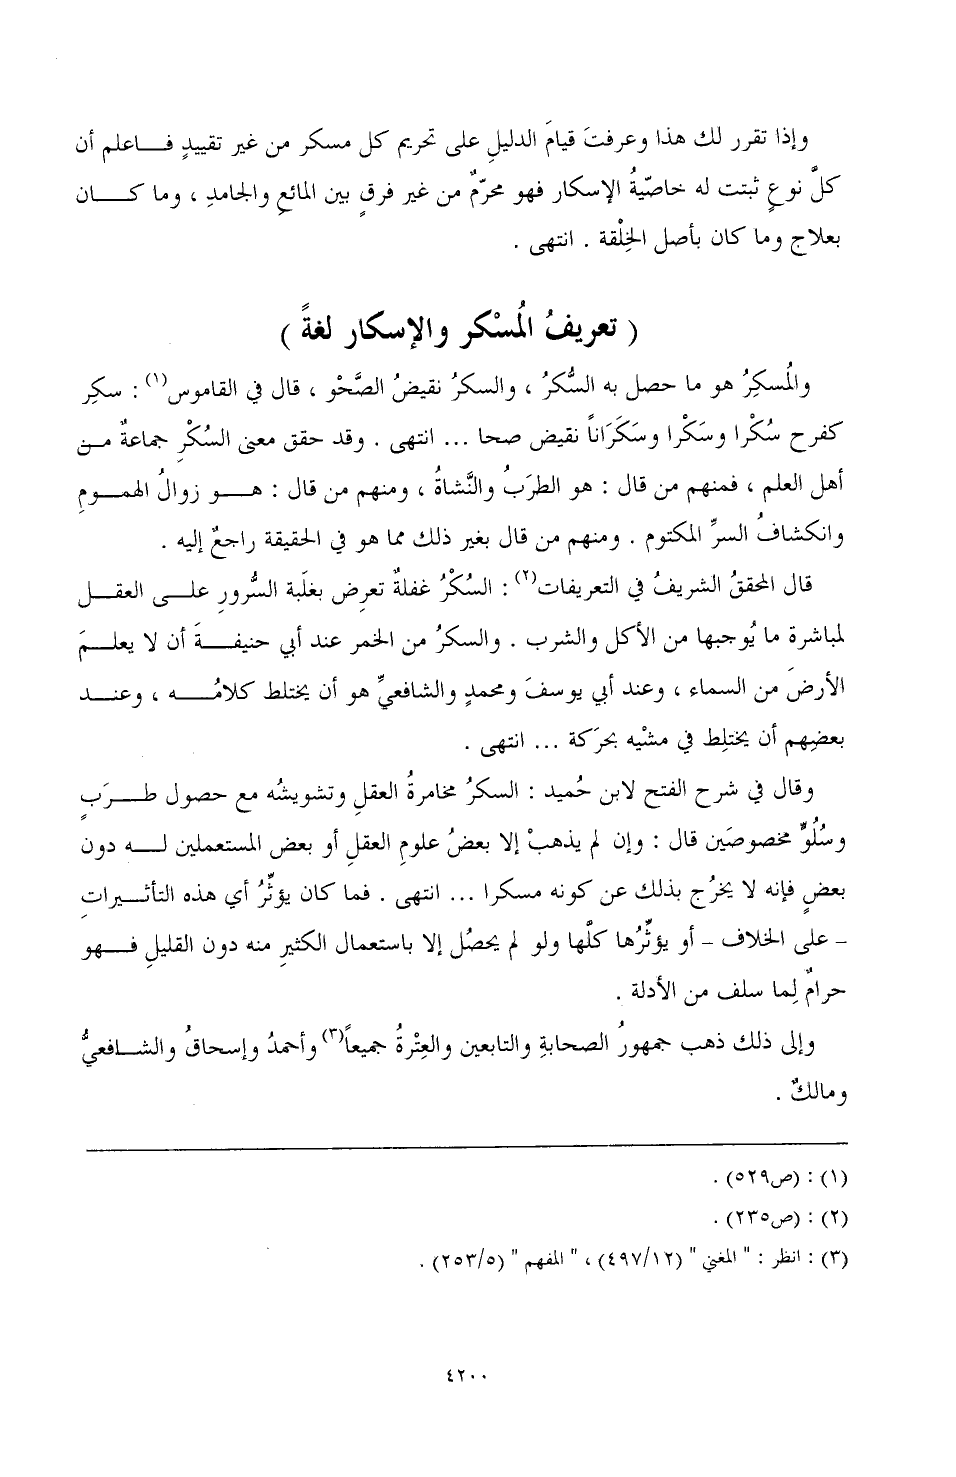 وإذا تقرر لك هذا وعرفتَ قيامَ الدليلِ على تحريم كل مسكر من غير تقييدٍ فـاعلم أن
كلَّ نوعٍ ثبتت له خاصّيةُ الإسكار فهو محرّمٌ من غير فرقٍ بين المائع والجامدِ ، وما كـان
بعلاج وما كان بأصل الخِلْقة . انتهى .
( تعريفُ المُسْكر والإسكار لغةً )
والمُسكِرُ هو ما حصل به السُّكرُ ، والسكرُ نقيضُ الصَّحْو ، قال في القاموس(١) : سكِر
كفرح سُكْرا وسَكْرا وسَكَرَاناً نقيض صحا ... انتهى . وقد حقق معنى السُكْرِ جماعةٌ مـن
أهل العلم ، فمنهم من قال : هو الطرَبُ والنَّشاةُ ، ومنهم من قال : هـو زوالُ الهمـومِ
وانكشافُ السرِّ المكتوم . ومنهم من قال بغير ذلك مما هو في الحقيقة راجعٌ إليه .
قال المحققُ الشريفُ في التعريفات(٢) : السُكْرُ غفلةٌ تعرِض بغلَبة السُّرورِ علـى العقـل
لمباشرة ما يُوجبها من الأكل والشرب . والسكرُ من الخمر عند أبي حنيفـةَ أن لا يعلـمَ
الأرضَ من السماء ، وعند أبي يوسفَ ومحمدٍ والشافعيِّ هو أن يختلط كلامُـه ، وعنـد
بعضِهم أن يختلِط في مشْيه بحرَكة ... انتهى .
وقال في شرح الفتح لابن حُميد : السكرُ مخامرةُ العقلِ وتشويشُه مع حصول طـرَبٍ
وسُلُوٍّ مخصوصَين قال : وإن لم يذهبْ إلا بعضُ علومِ العقلِ أو بعض المستعملين لـه دون
بعضٍ فإنه لا يخرُج بذلك عن كونه مسكرا ... انتهى . فما كان يؤثِّرُ أي هذه التأثـيراتِ
- على الخلاف - أو يؤثِّرُها كلَّها ولو لم يحصُل إلا باستعمال الكثيرِ منه دون القليلِ فـهو
حرامٌ لِما سلف من الأدلة .
وإلى ذلك ذهب جمهورُ الصحابةِ والتابعين والعِتْرةُ جميعاً(٣) وأحمدُ وإسحاقُ والشـافعيُّ
ومالكٌ .
(١) : (ص٥٢٩) .
(٢) : (ص٢٣٥) .
(٣) : انظر : " المغني " (٤٩٧/١٢) ، " المفهم " (٢٥٣/٥) .
٤٢٠٠